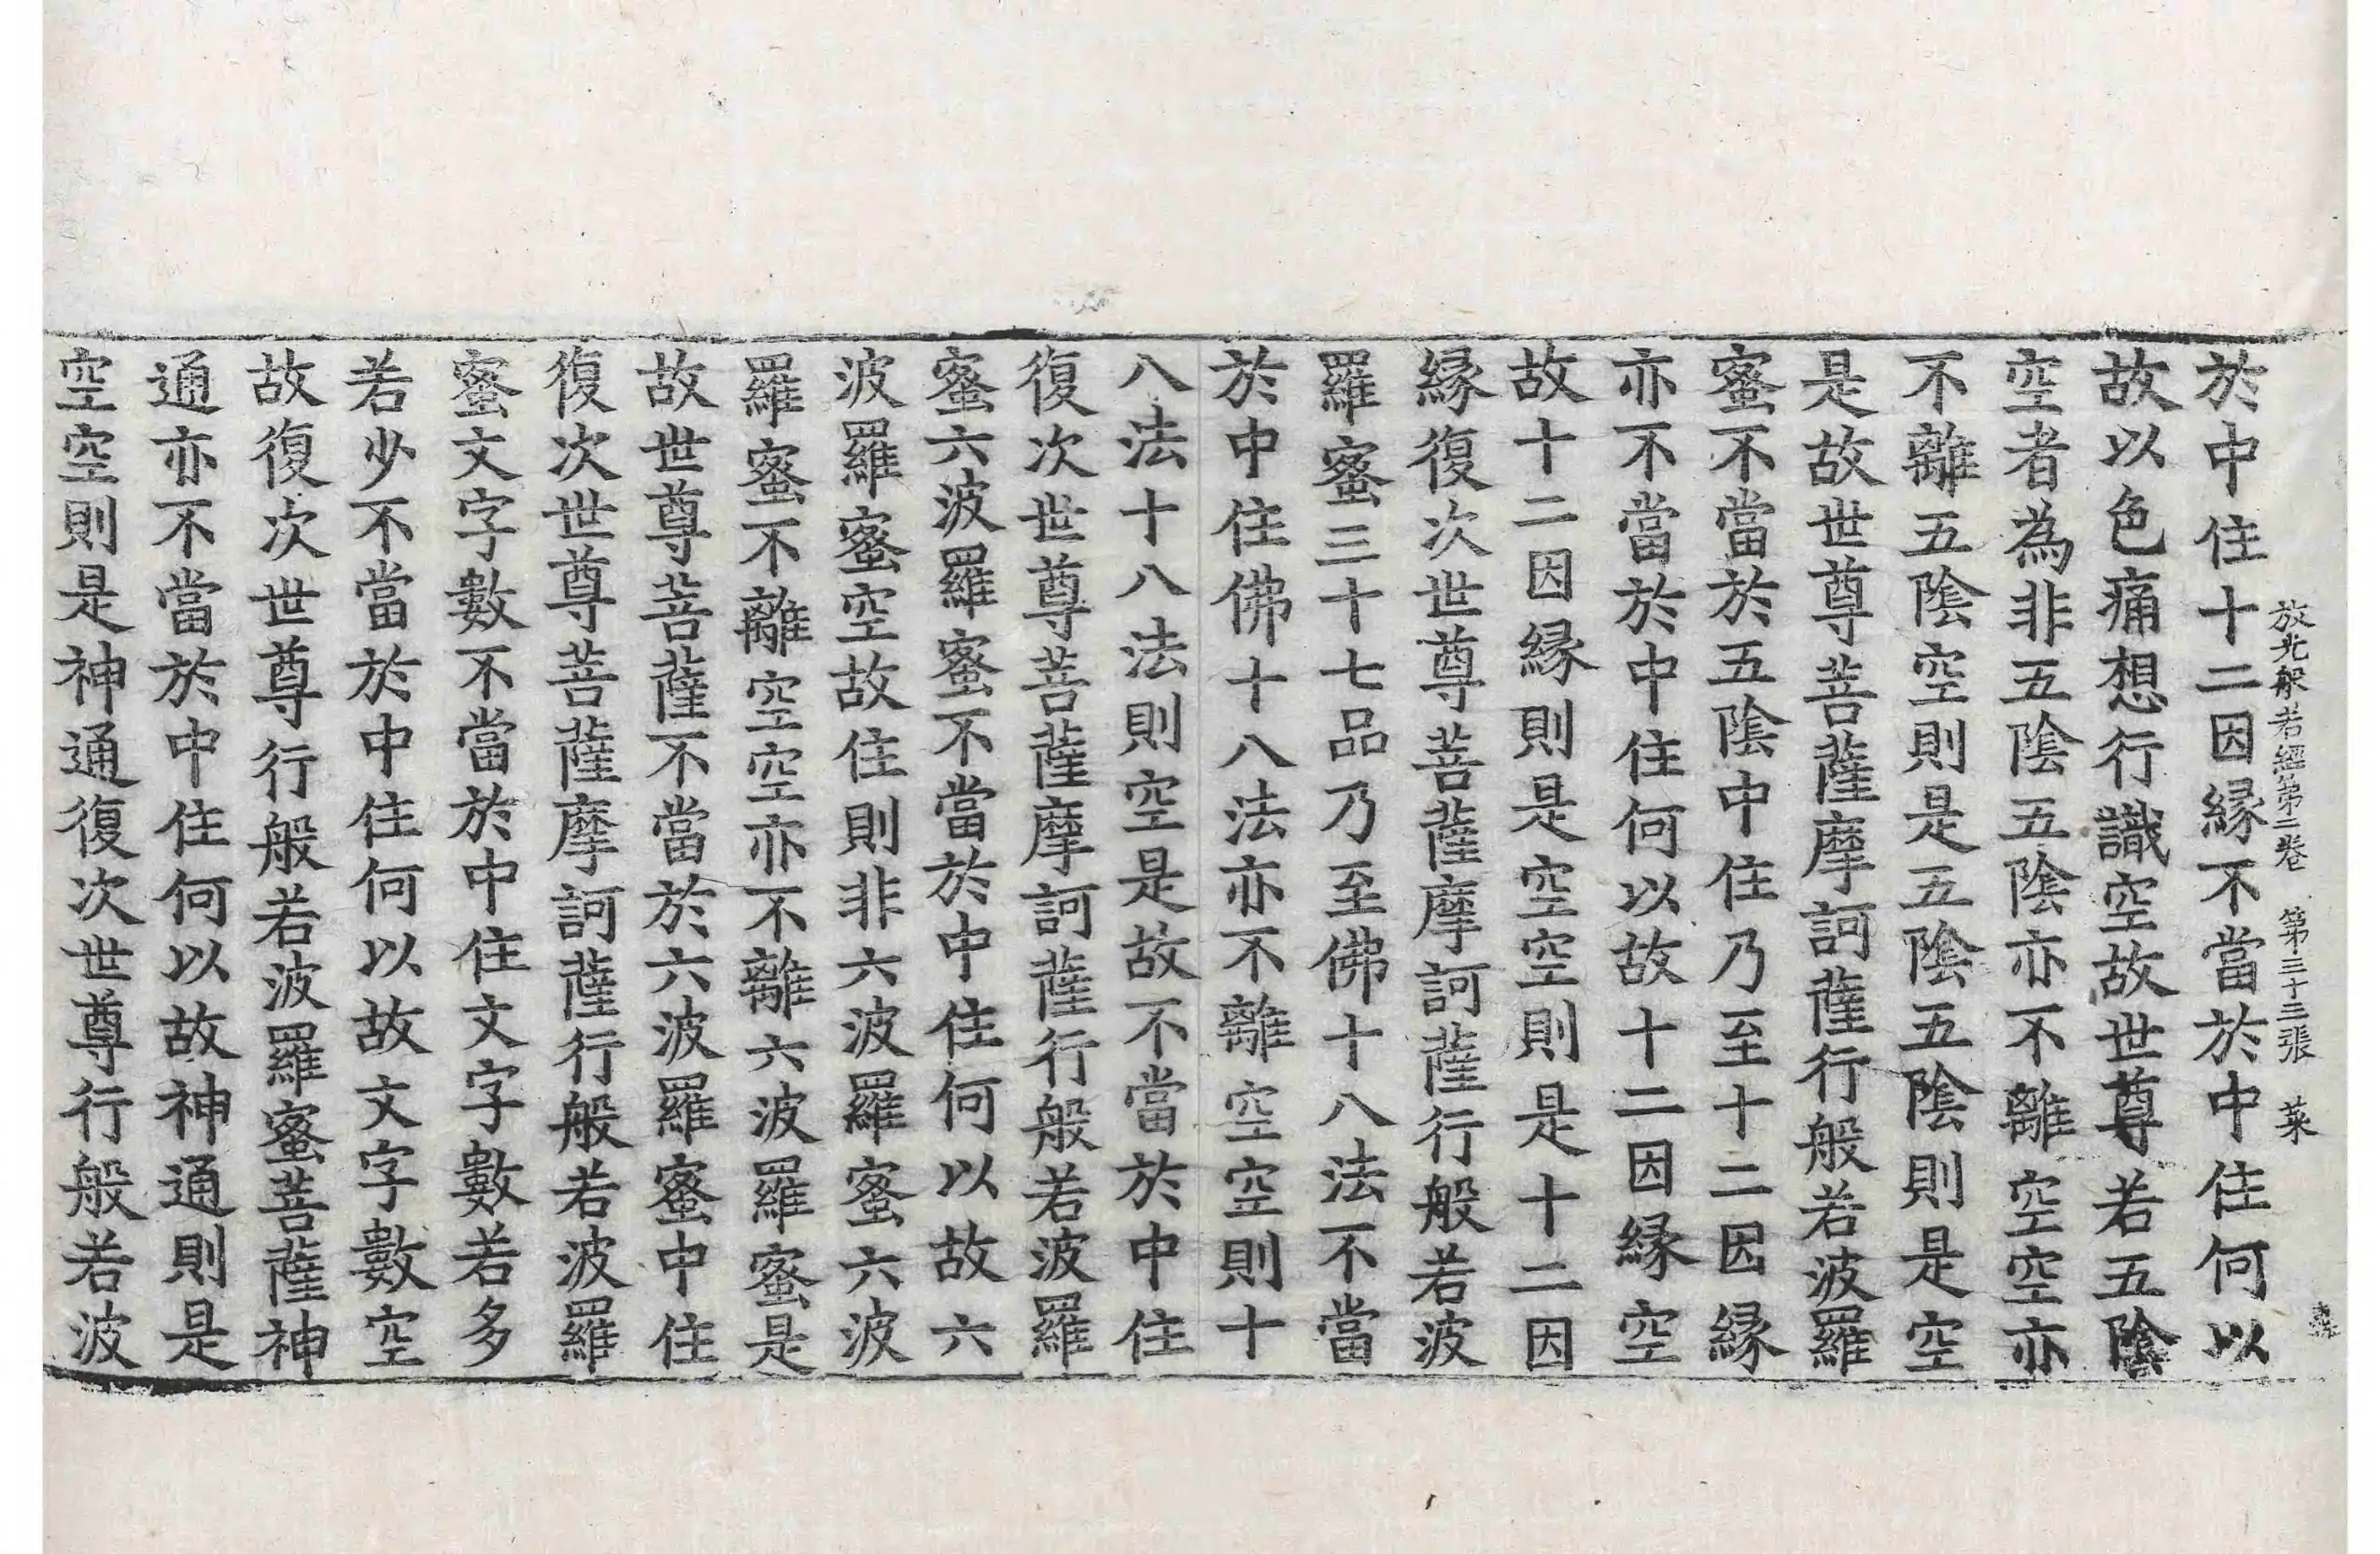 放光般若經第二卷　第三十三張　菜
於中住十二因緣不當於中住何以
故以色痛想行識空故世尊若五陰
空者為非五陰五陰亦不離空空亦
不離五陰空則是五陰五陰則是空
是故世尊菩薩摩訶薩行般若波羅
蜜不當於五陰中住乃至十二因緣
亦不當於中住何以故十二因緣空
故十二因緣則是空空則是十二因
緣復次世尊菩薩摩訶薩行般若波
羅蜜三十七品乃至佛十八法不當
於中住佛十八法亦不離空空則十
八法十八法則空是故不當於中住
復次世尊菩薩摩訶薩行般若波羅
蜜六波羅蜜不當於中住何以故六
波羅蜜空故住則非六波羅蜜六波
羅蜜不離空空亦不離六波羅蜜是
故世尊菩薩不當於六波羅蜜中住
復次世尊菩薩摩訶薩行般若波羅
蜜文字數不當於中住文字數若多
若少不當於中住何以故文字數空
故復次世尊行般若波羅蜜菩薩神
通亦不當於中住何以故神通則是
空空則是神通復次世尊行般若波